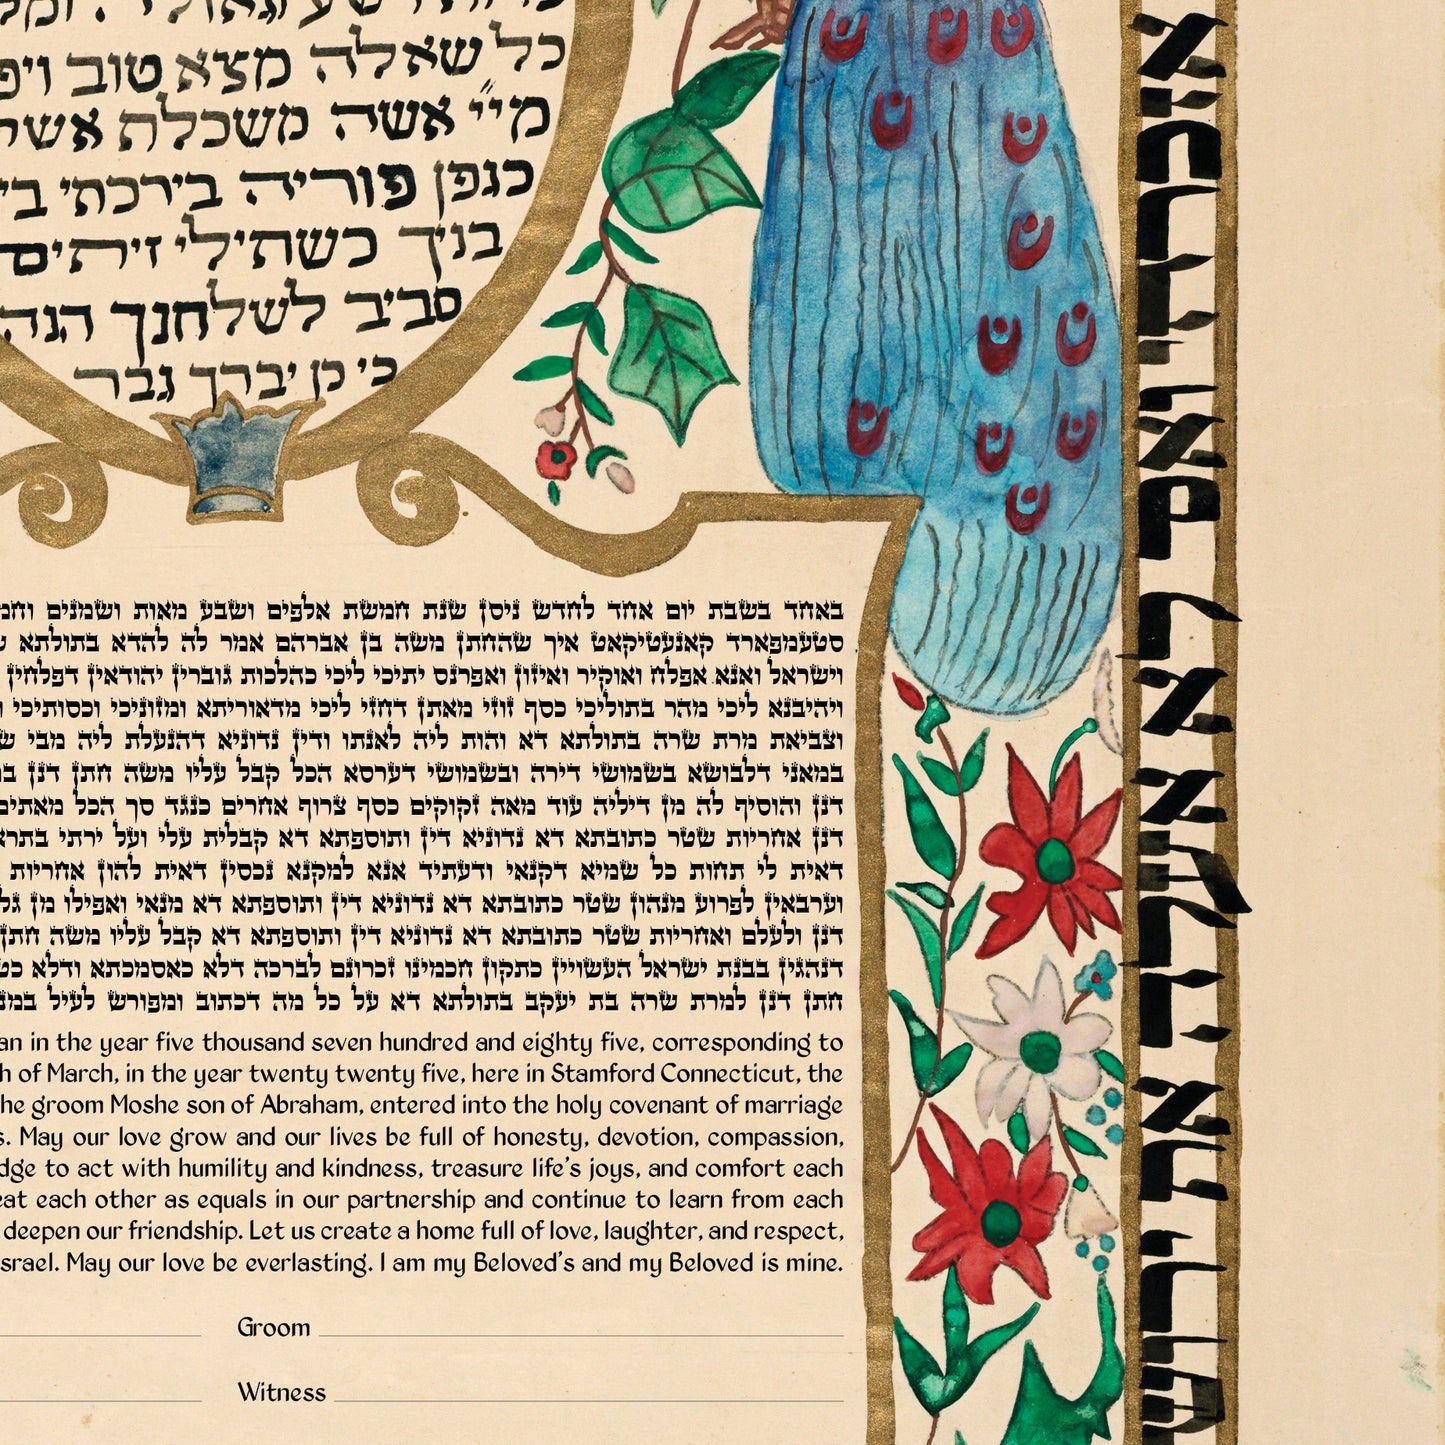 כל שאלה מצא טוב ויפ
מי״י אשה משכלת אשר
כגפן פוריה בירכתי בי
בניך כשתילי זיתים
סביב לשלחנך הנה
כי כן יברך גבר
באחד בשבת יום אחד לחדש ניסן שנת חמשת אלפים ושבע מאות ושמנים וחמ
סטעמפארד קאנעטיקאט איך שהחתן משה בן אברהם אמר לה להדא בתולתא ש
וישראל ואנא אפלח ואוקיר ואיזון ואפרנס יתיכי ליכי כהלכות גוברין יהודאין דפלחין
ויהיבנא ליכי מהר בתוליכי כסף זוזי מאתן דחזי ליכי מדאוריתא ומזוניכי וכסותיכי ו
וצביאת מרת שרה בתולתא דא והות ליה לאנתו ודין נדוניא דהנעלת ליה מבי
במאני דלבושא בשמושי דירה ובשמושי דערסא הכל קבל עליו משה חתן דנן
דנן והוסיף לה מן דיליה עוד מאה זקוקים כסף צרוף אחרים כנגד סך הכל מאתים
דנן אחריות שטר כתובתא דא נדוניא דין ותוספתא דא קבלית עלי ועל ירתי בתרא
דאית לי תחות כל שמיא דקנאי ודעתיד אנא למקנא נכסין דאית להון אחריות
וערבאין לפרוע מנהון שטר כתובתא דא נדוניא דין ותוספתא דא מנאי ואפילו מן גל
דנן ולעלם ואחריות שטר כתובתא דא נדוניא דין ותוספתא דא קבל עליו משה חתן
דנהגין בבנת ישראל העשויין כתקון חכמינו זכרונם לברכה דלא כאסמכתא ודלא כט
חתן דנן למרת שרה בת יעקב בתולתא דא על כל מה דכתוב ומפורש לעיל במנ
an in the year five thousand seven hundred and eighty five, corresponding to
h of March, in the year twenty twenty five, here in Stamford Connecticut, the
he groom Moshe son of Abraham, entered into the holy covenant of marriage
s. May our love grow and our lives be full of honesty, devotion, compassion,
dge to act with humility and kindness, treasure life's joys, and comfort each
eat each other as equals in our partnership and continue to learn from each
deepen our friendship. Let us create a home full of love, laughter, and respect,
srael. May our love be everlasting. I am my Beloved's and my Beloved is mine.
Groom
Witness